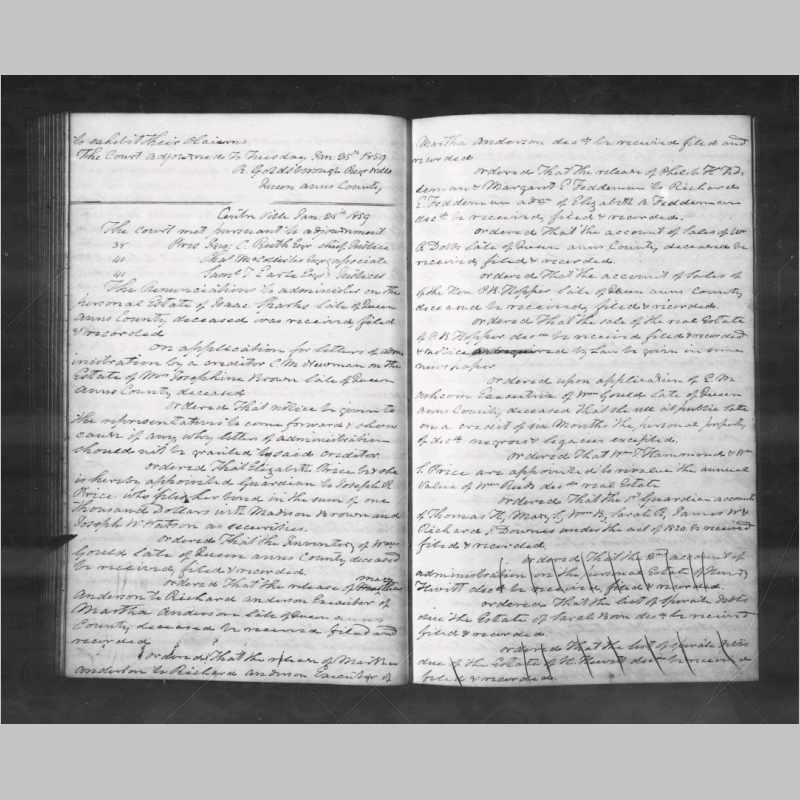 to exhibit their claims
The Court adjourned to Tuesday Jan 25th 1859
R Goldsborough Regr Wills
Queen Anns County
Centre Ville Jan. 25th 1859
The Court met pursuant to adjournment
Pres
Saml T Earle Esqr
The Renunciations to administer on the
personal Estate of Isaac Sparks late of Queen
Anns County deceased was received filed
& recorded
On application for letters of adm
inistration by a creditor C. M. Newman on the
Estate of Josephine Brown late of Queen
Anns County deceased
Ordered That notice be given to
the representatives to come forward & show
cause if any why letters of administration
should not be granted to said creditor
Ordered That Elizabeth Price be & she
is hereby appointed Guardian to Joseph R
Price who files her bond in the sum of one
thousand Dollars with Madison Brown and
Joseph W Watson as securities.
Ordered That the Inventory of Wm
Gould late of Queen Anns County deceased
be received, filed & recorded.
Ordered That the release of Mary
Anderson to Richard Anderson Executor of
Martha Anderson late of Queen Anns
County deceased be received filed and
recorded
Ordered That the release of Martha
Anderson to Richard Anderson Executor of
Martha Anderson decd be received filed and
recorded
Ordered That the release of
& Margaret E Feddeman to Richard
E. Feddeman of Elizabeth A Feddeman
decd be received, filed & recorded.
Ordered That the account of Sales of Wm
late of Queen Anns County deceased be
received, filed & recorded.
Ordered That the account of Sales of
of the Hon P. B. Hopper late of Queen Anns County
deceased be received, filed & recorded.
Ordered That the sale of the real Estate
of P. B. Hopper decd be received filed & recorded
& notice by Law be given in some
newspaper
Ordered upon application of
Executrix of Wm Gould late of Queen
Anns County deceased that she sell at public sale
on a credit of six Months the personal property
of decd negroes & legacies excepted.
Ordered That Wm T Hammond & Wm
Price are appointed to revalue the annual
Value of Wm decd real Estate
Ordered That the 1st Guardian account
of Thomas H, Mary E, Wm B, Sarah R, James W &
Richard Downes under the act of 1820 be received
filed & recorded.
Ordered That the account of
administration on the personal Estate of
Hewitt decd be received, filed & recorded.
Ordered That the list of sperate debts
due the Estate of Sarah decd be received
filed & recorded
Ordered That the list of sperate debts
due of the Estate of Hewitt decd be received
filed & recorded.